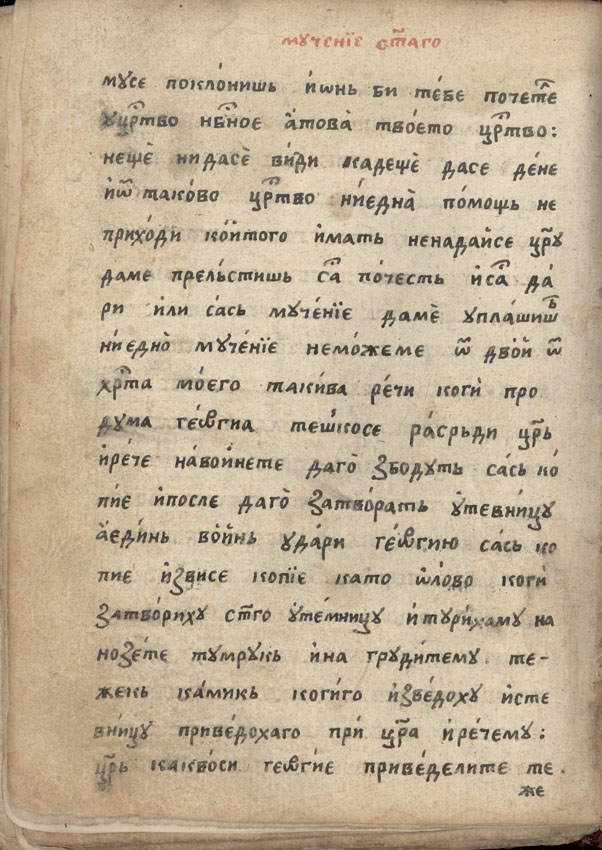 мꙋченїе ст҃аго
мꙋсе поклóнишь и҆ѡнь би тéбе почетє
ꙋцр҃тво нб҃ное а҆това̀ твóето цр҃тво:
нещѐ нидасѐ вѝди кадещѐ дасе дéне
и҆ѿ такóво цр҃тво нїедна̀ пóмощь не
прихóди кóйтого и҆мать ненада́йсе цр҃ꙋ
даме прельстишь са пóчесть и҆са да́
ри или са́сь мꙋчéнїе дамѐ ꙋплашишь
нїедно̀ мꙋчéнїе немóжеме ѿ двóй ѿ
хр҃та мóего таки́ва рéчи коги̇̀ про
дꙋма геѡ́ргиа тешкосе ра́срьди цр҃ь
и҆рéче на́войнете даго̀ ꙁбодꙋть са́сь кó
пїе и҆после даго̀ ꙁатвóрать ꙋтевни́цꙋ
а҆еди́нь вóйнь ꙋда́ри геѡ́ргию са́сь ко
пие и҆ꙁвисе копїе като ѡ҆лово коги̇̀
ꙁатвóрихꙋ ст҃го ꙋтéмницꙋ и҆тꙋри́хамꙋ на
ноꙁéте тꙋмрꙋкь и҆на грꙋди́темꙋ те-
жекь ка́микь коги́го и҆ꙁвéдохꙋ и҆сте
вни́цꙋ привéдохаго при́ цр҃а и҆рéчемꙋ:
цр҃ь каквóси геѡ́ргїе привéделите те.
же